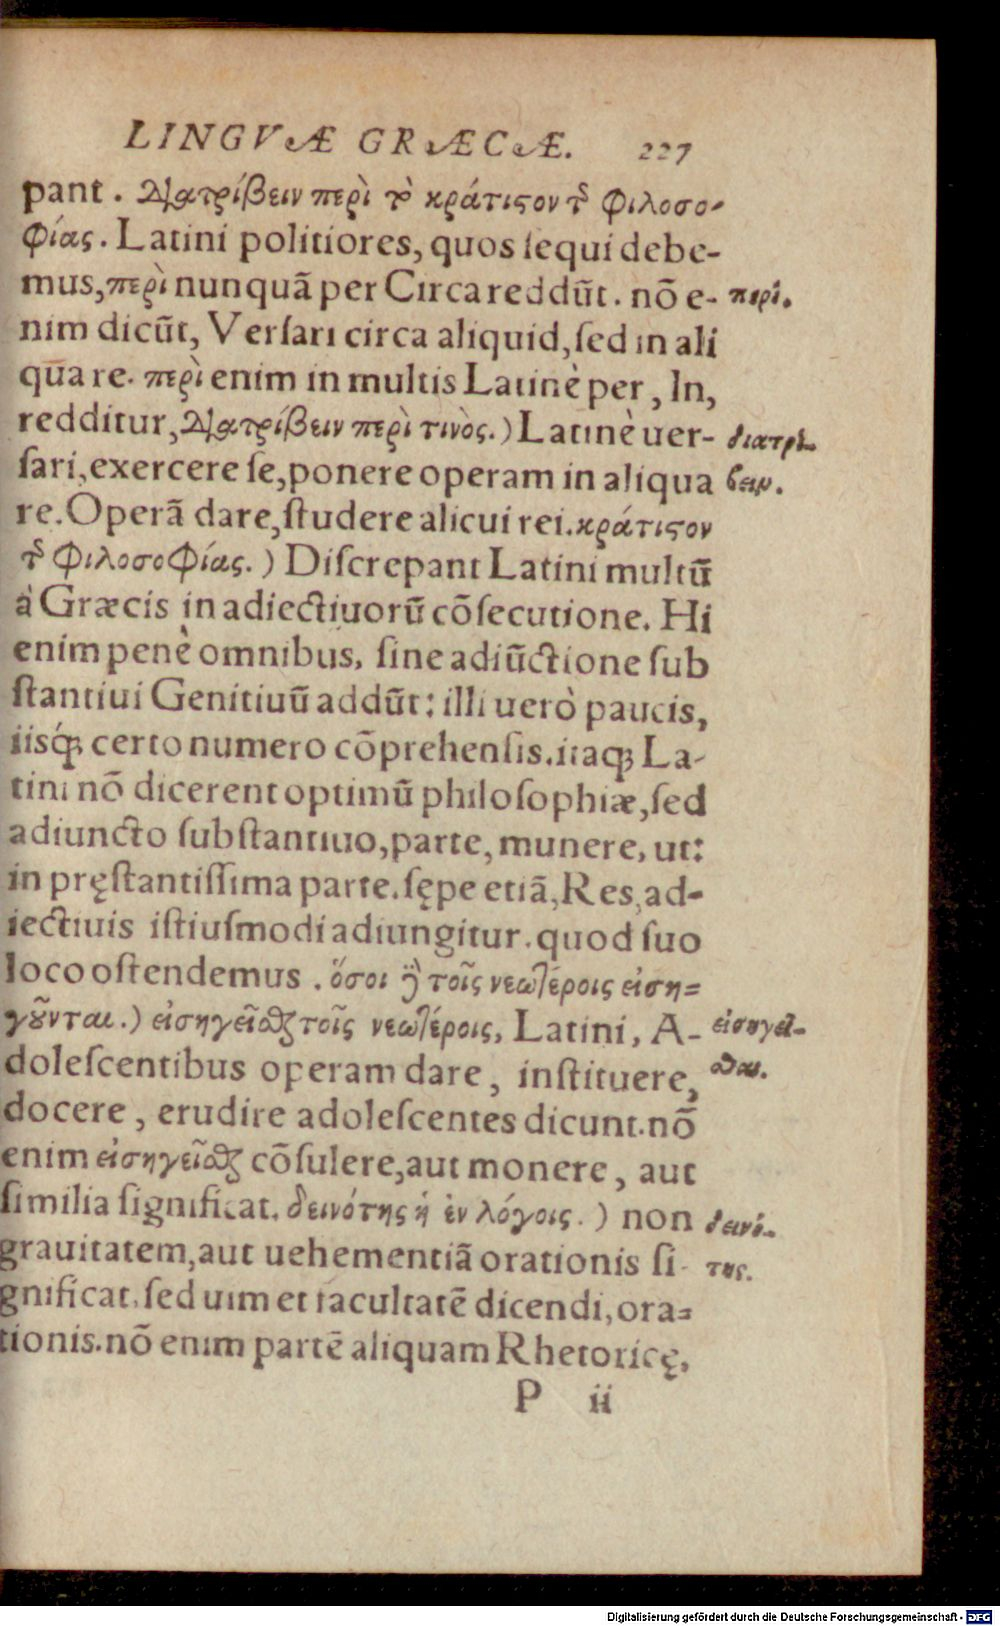 LINGVÆ GRÆCÆ. 227
pant. Διατρίβειν περὶ τὸ κράτιστον τῆς φιλοσο-
φίας. Latini politiores, quos ſequi debe-
mus, περὶ nunquã per Circa reddũt. nõ e-
περὶ.
nim dicũt, Verſari circa aliquid, ſed in ali
qua re. περὶ enim in multis Latinè per, In,
redditur, Διατρίβειν περὶ τινὸς.) Latinè uer-
διατρί-
ſari, exercere ſe, ponere operam in aliqua
βειν.
re. Operã dare, ſtudere alicui rei. κράτιστον
τῆς φιλοσοφίας.) Diſcrepant Latini multũ
à Græcis in adiectiuorũ cõſecutione. Hi
enim penè omnibus, ſine adiũctione ſub
ſtantiui Genitiuũ addũt: illi uerò paucis,
iisq́ꝫ certo numero cõprehenſis. itaqꝫ La-
tini nõ dicerent optimũ philoſophiæ, ſed
adiuncto ſubſtantiuo, parte, munere, ut:
in pręſtantiſſima parte. ſępe etiã, Res, ad-
iectiuis iſtiuſmodi adiungitur. quod ſuo
loco oſtendemus. ὅσοι ἢ τοῖς νεωτέροις εἰση-
γοῦνται.) εἰσηγεῖσθαι τοῖς νεωτέροις, Latini, A-
εἰσηγεῖ-
doleſcentibus operam dare, inſtituere,
σθαι.
docere, erudire adoleſcentes dicunt. nõ
enim εἰσηγεῖσθαι cõſulere, aut monere, aut
ſimilia ſignificat. δεινότης ἡ ἐν λόγοις.) non
δεινό-
grauitatem, aut uehementiã orationis ſi-
της.
gnificat, ſed uim et facultatẽ dicendi, ora-
tionis. nõ enim partẽ aliquam Rhetoricę,
P ii
Digitalisierung gefördert durch die Deutsche Forschungsgemeinschaft - DFG